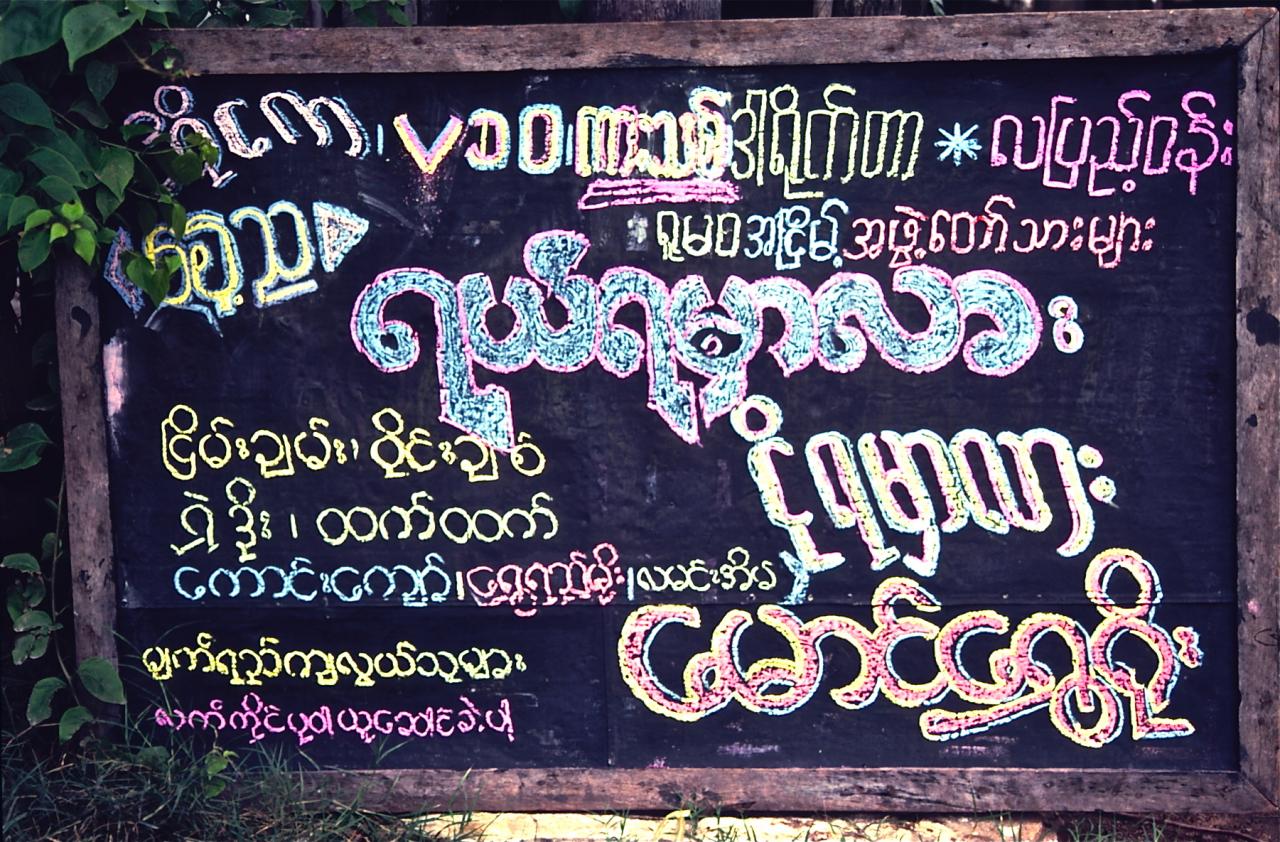 ဘဝ ကားသစ် ဒါရိုက်တာ * လပြည့်ဝန်း
ရုမစအငြိမ့်အဖွဲ့တော်သားများ
ည
ရယ်ရမှာလား
ငိုရမှာလား
ငြိမ်းချမ်း၊ ဝိုင်းချစ်
ရဲဒိုး၊ ထက်ထက်
ကောင်းကျော်၊ ရွှေကျည်စိုး၊ လမင်းအိမ
မောင်ရွှေရိုး
မျက်ရည်ကျလွယ်သူများ
လက်ကိုင်ပုဝါယူဆောင်ခဲ့ပါ